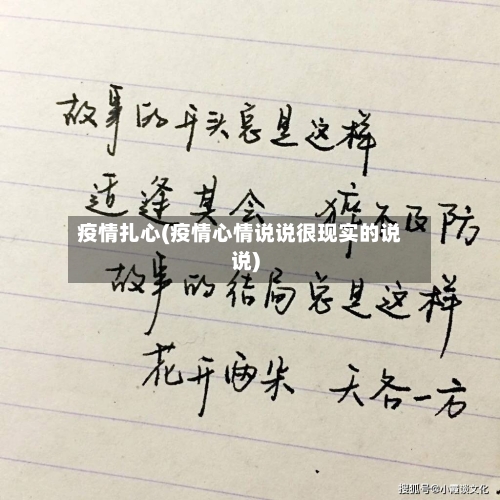 故事的开头总是这样
适逢其会 猝不及防
疫情扎心(疫情心情说说很现实的说
说)
故事的结局总是这样
花开两朵 天各一方
搜狐号@小霞谈文化